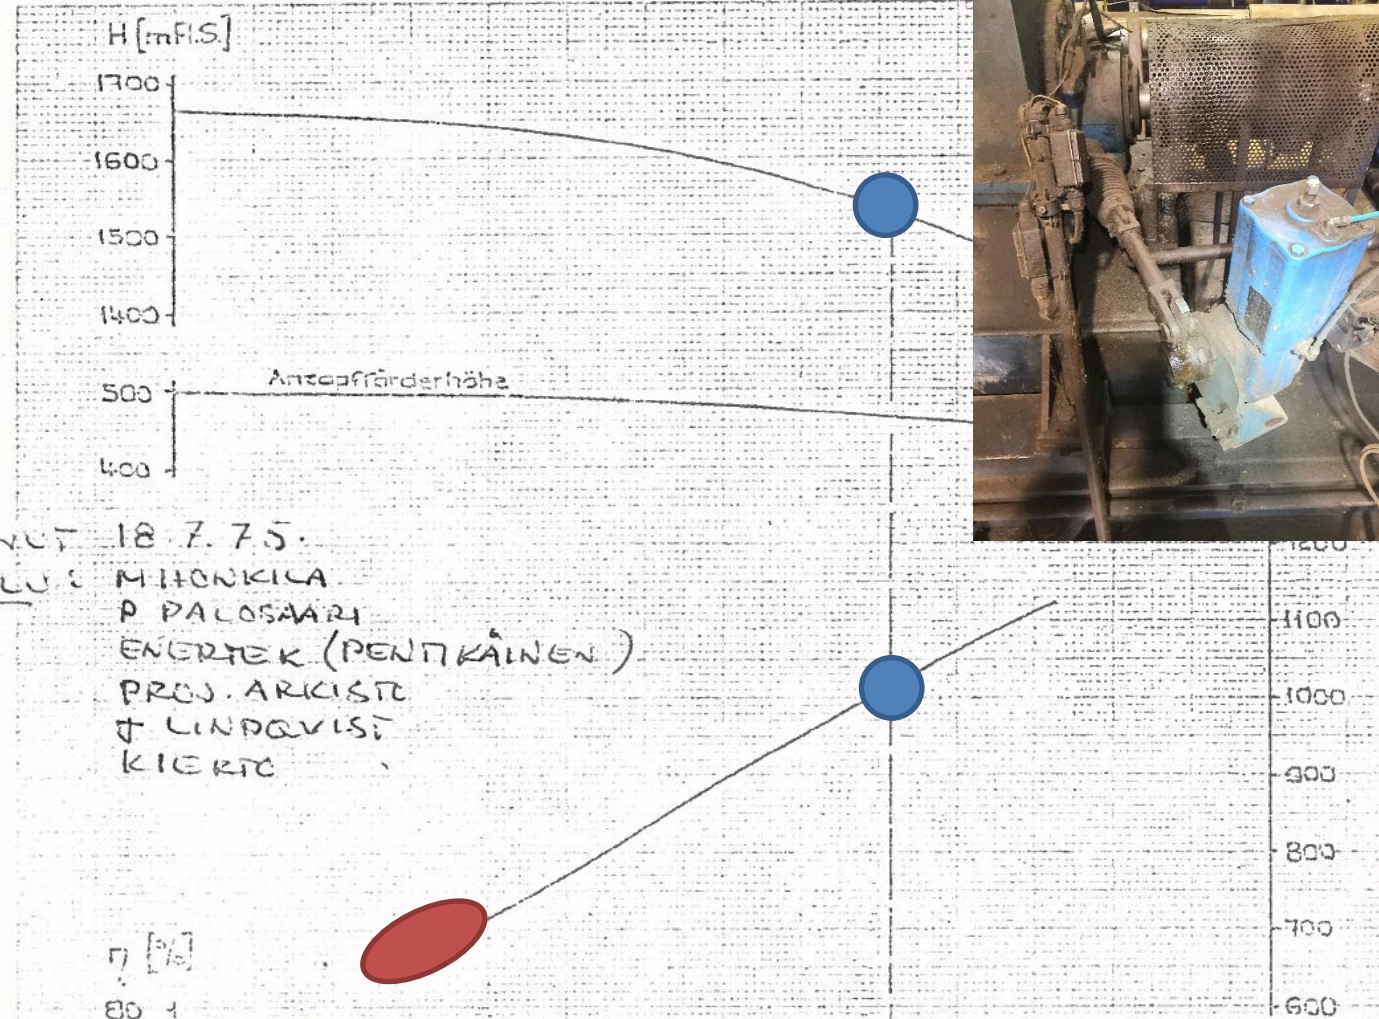 H [mFl.S.]
1700
1600
1500
1400
Anzapfförderhöhe
500
400
18.7.75.
M HONKILA
P PALOSAARI
ENERTEK (PENTIKÄINEN)
PROJ. ARKISTO
J LINDQVIST
KIERTO
1200
1100
1000
900
800
700
600
η [%]
80